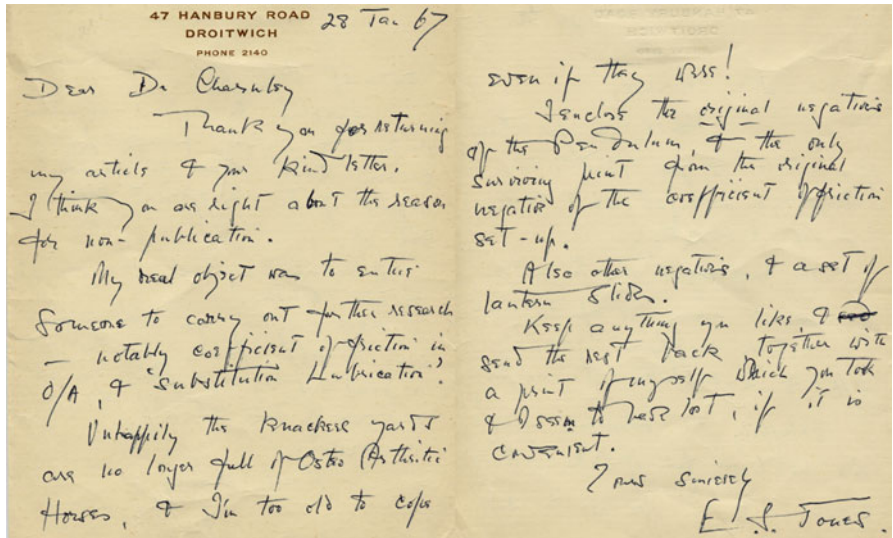 47 HANBURY ROAD
DROITWICH
PHONE 2140
28 Jan 67
Dear Dr Charnley
Thank you for returning
my article & your kind letter.
I think you are right about the reason
for non-publication.
My real object was to entice
someone to carry out further research
— notably coefficient of friction in
O/A, & "Substitution Lubrication".
Unhappily the knackers yards
are no longer full of Osteo Arthritic
Horses, & I'm too old to cope
even if they were!
I enclose the original negatives
of the Pendulum, & the only
surviving print from the original
negative of the coefficient of friction
set-up.
Also other negatives, & a set of
lantern slides.
Keep anything you like, &
send the rest back together with
a print of myself which you took
& I seem to have lost, if it is
convenient.
Yours sincerely
E. S. Jones.